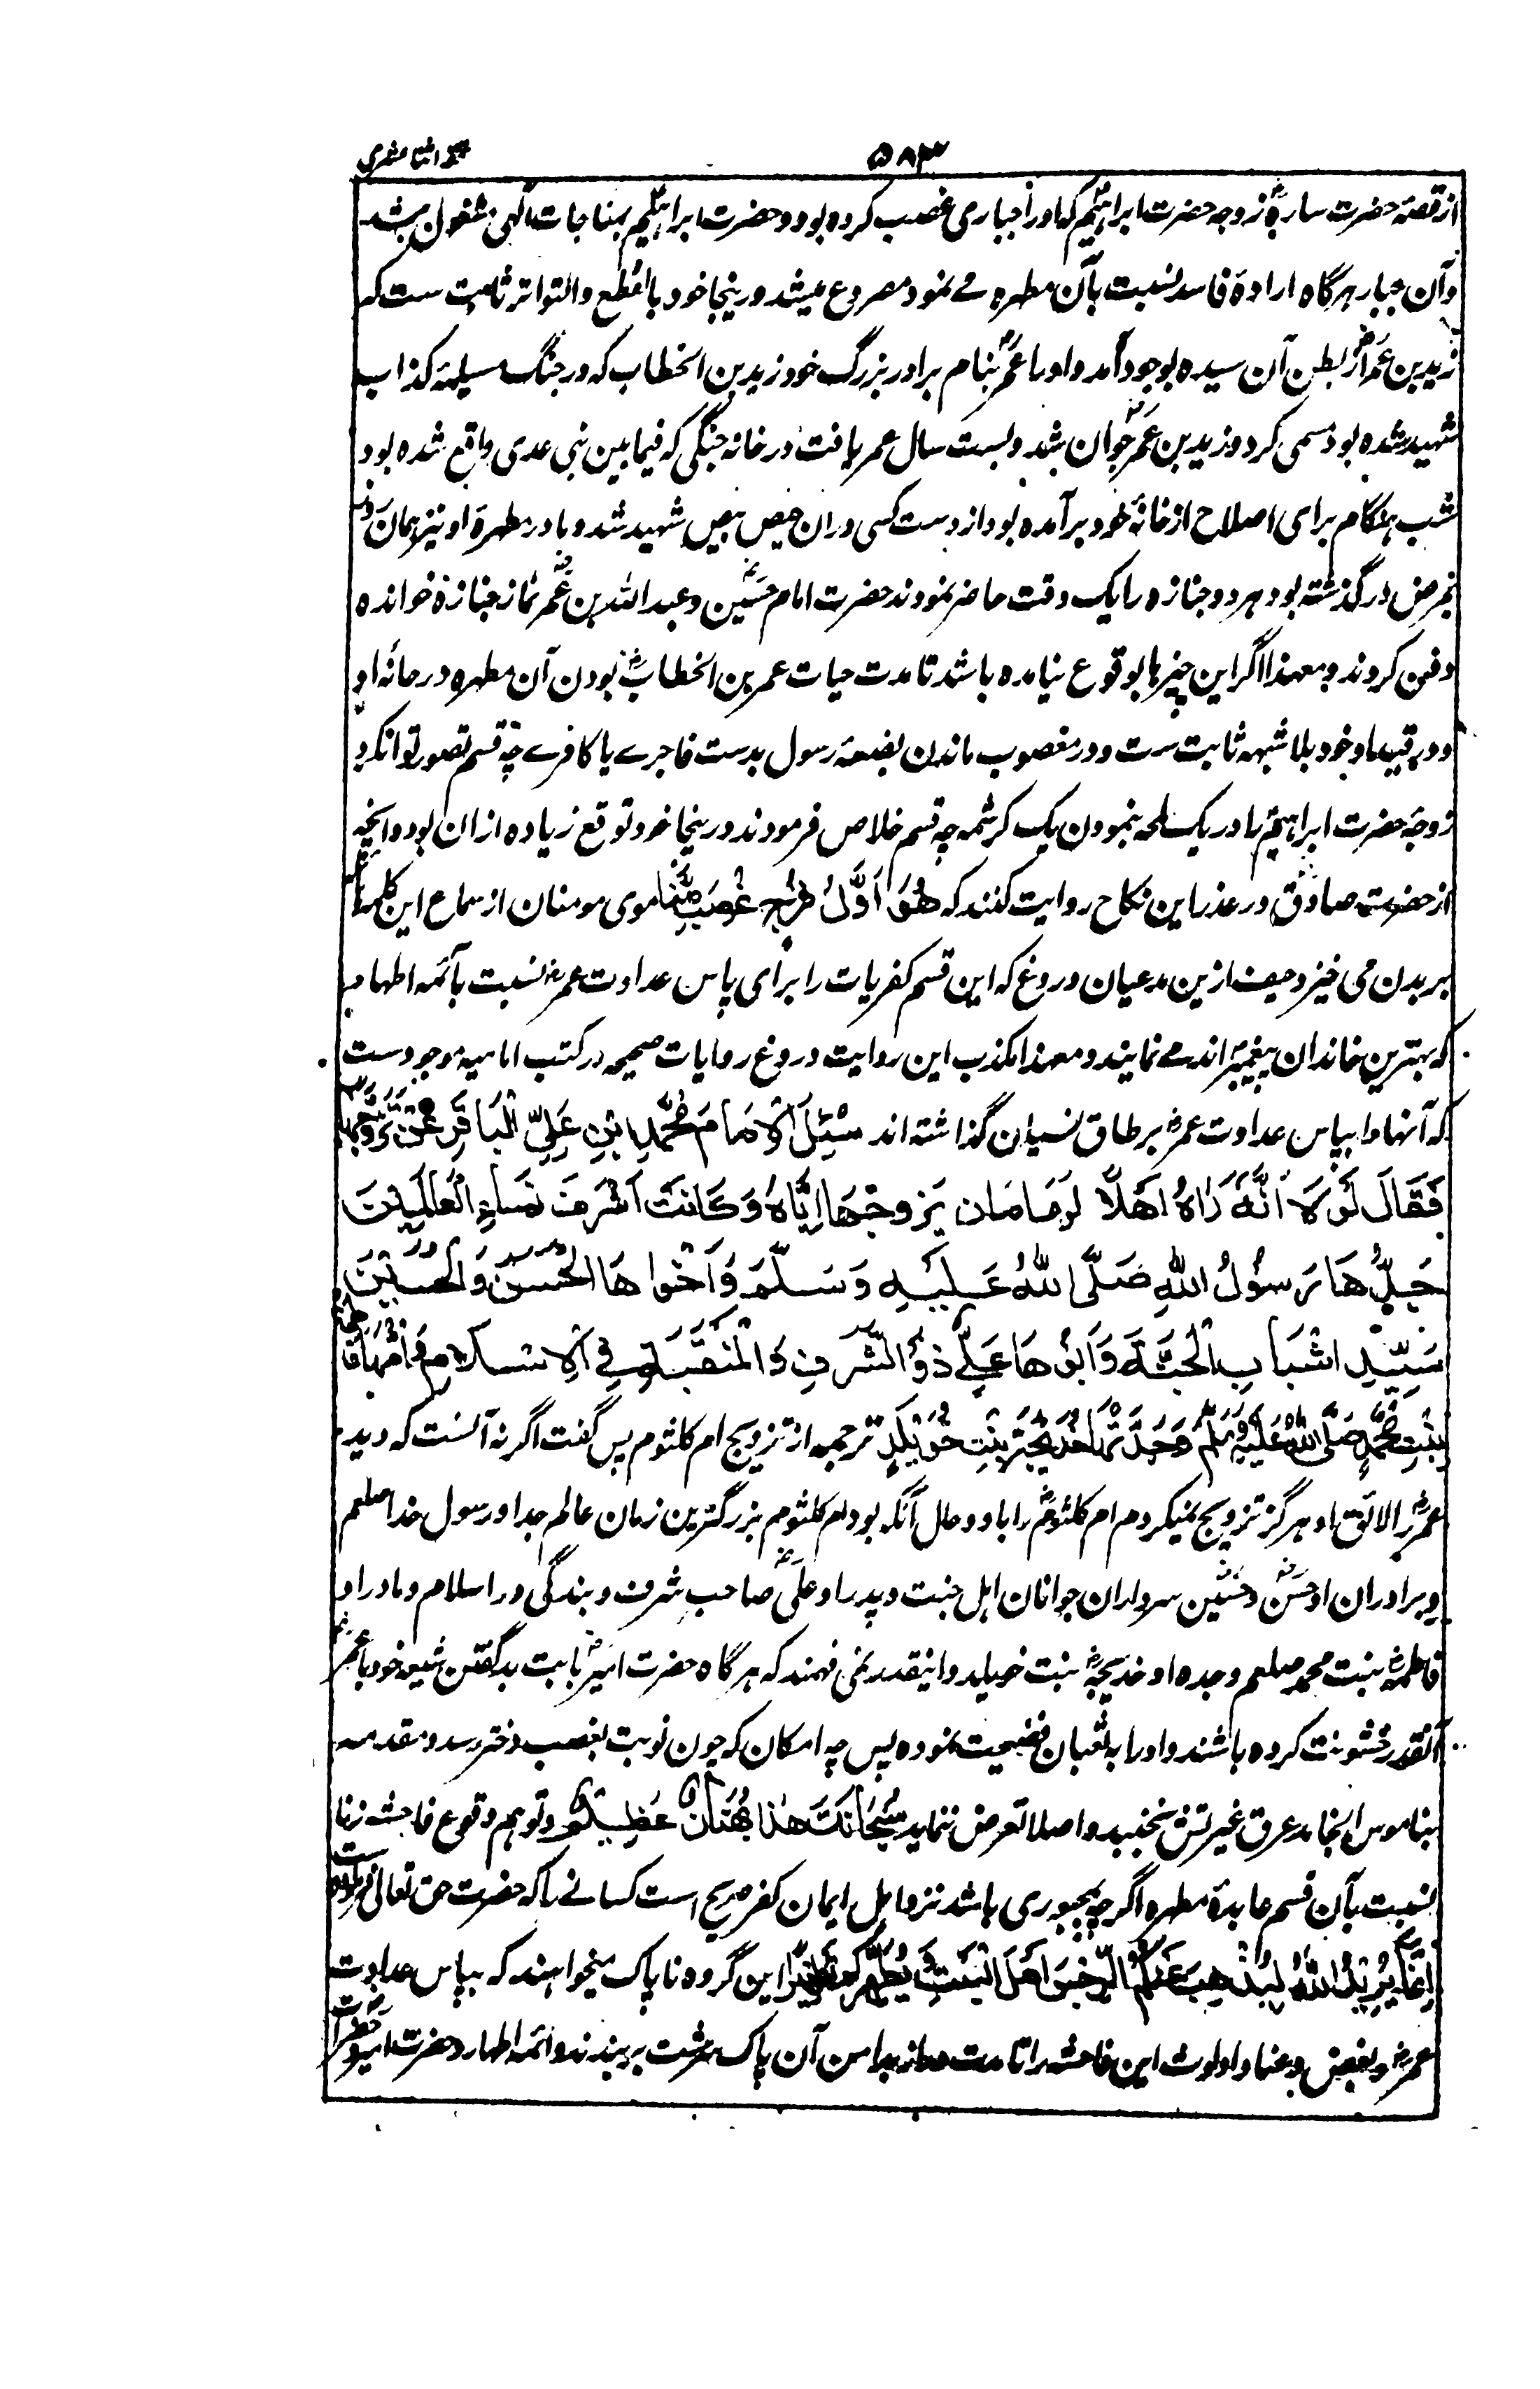 ۵۸۳
از قصهٔ حضرت ساره زوجه حضرت ابراهیم که او را جباری غصب کرده بود و حضرت ابراهیم بمناجات الهی مشغول شد
و آن جبار هرگاه ارادهٔ فاسد نسبت بآن مطهره مے نمود مصروع میشد درینجا خود بالقطع والتواتر ثابت ست که
زید بن عمر از بطن آن سیده بوجود آمد و او را عمر بنام برادر بزرگ خود زید بن الخطاب که در جنگ مسیلمهٔ کذاب
شهید شده بود مسمی کرد و زید بن عمر جوان شد و بست سال عمر یافت در خانه جنگی که فیما بین بنی عدی واقع شده بود
شب هنگام برای اصلاح از خانهٔ خود برآمده بود از دست کسی دران حیص بیص شهید شد و مادر مطهرهٔ او نیز همان روز
بمرض درگذشته بود هر دو جنازه را یک وقت حاضر نمودند حضرت امام حسین و عبد الله بن عمر نماز جنازه خوانده
دفن کردند و معهذا اگر این چیزها بوقوع نیامده باشد تا مدت حیات عمر بن الخطاب بودن آن مطهره در خانهٔ او
و در قید او خود بلا شبهه ثابت ست و در مغصوب ماندن بضعهٔ رسول بدست فاجرے یا کافرے چه قسم تصور توان کرد
زوجهٔ حضرت ابراهیم را در یک لمحه بنمودن یک کرشمه چه قسم خلاص فرمودند درینجا خود توقع زیاده ازان بود و آنچه
از حضرت صادق در عذر این نکاح روایت کنند که هُوَ اَوَّلُ فَرْجٍ غُصِبَ مِنَّا موی مومنان از سماع این کلمه
بر بدن می خیزد حیف ازین مدعیان دروغ که این قسم کفریات را برای پاس عداوت عمر نسبت بائمه اطهار
که بهترین خاندان پیغمبر اند مے نمایند و معهذا مکذب این روایت دروغ روایات صحیحه در کتب امامیه موجود ست
که آنها را بپاس عداوت عمر بر طاق نسیان گذاشته اند سُئِلَ الْاِمَامَ مُحَمَّدِ ابْنِ عَلِیِّ الْبَاقِرَ عَنْ تَزَوُّجِهَا
فَقَالَ لَوْ لَا اَنَّهُ رَاٰهُ اَهْلًا لَهَا مَا كَانَ يَزَوِّجُهَا اِيَّاهُ وَكَانَتْ اَشْرَفَ نِسَاءِ الْعَالَمِيْنَ
جَدُّهَا رَسُوْلُ اللّٰهِ صَلَّى اللّٰهُ عَلَيْهِ وَسَلَّمَ وَاَخَوَاهَا الْحَسَنُ وَالْحُسَيْنُ
سَيِّدَا شَبَابِ الْجَنَّةِ وَاَبُوْهَا عَلِيٌّ ذُوْ الشَّرَفِ وَالْمَنْقَبَةِ فِي الْاِسْلَامِ وَاُمُّهَا فَاطِمَةُ
بِنْتُ مُحَمَّدٍ صَلَّى اللّٰهُ عَلَيْهِ وَسَلَّمَ وَجَدَّتُهَا خَدِيْجَةُ بِنْتِ خُوَيْلِدٍ ترجمه از تزویج ام کلثوم پس گفت اگر نه آنست که دید
عمر را لائق او هرگز تزویج نمیکردم ام کلثوم را با او و حال آنکه بود ام کلثوم بزرگترین زنان عالم جد او رسول خدا صلعم
و برادران او حسن و حسین سرداران جوانان اهل جنت و پدر او علی صاحب شرف و بندگی در اسلام و مادر او
فاطمه بنت محمد صلعم و جده او خدیجه بنت خویلد و اینقدر نمی فهمند که هرگاه حضرت امیر بابت بد گفتن شیعه خود با عمر
آنقدر خشونت کرده باشند و او را به ثعبان فضیحت نموده پس چه امکان که چون نوبت بغصب دختر رسد و مقدمه
بناموس انجامد عرق غیرتش نجنبد و اصلا تعرض ننماید سُبْحَانَكَ هٰذَا بُهْتَانٌ عَظِيْمٌ و توهم وقوع فاحشه زنا
نسبت بآن قسم عابدهٔ مطهره اگرچه بمجبوری باشد نزد اهل ایمان کفر صریح است کسانے را که حضرت حق تعالی فرموده
اِنَّمَا يُرِيْدُ اللّٰهُ لِيُذْهِبَ عَنْكُمُ الرِّجْسَ اَهْلَ الْبَيْتِ وَيُطَهِّرَكُمْ تَطْهِيْرًا این گروه ناپاک میخواهند که بپاس عداوت
عمر و بغض و عناد او لوث این فاحشه را تا مدت دراز بدامن آن پاک سرشت بربندند و ائمه اطهار و حضرت امیر و حضرات